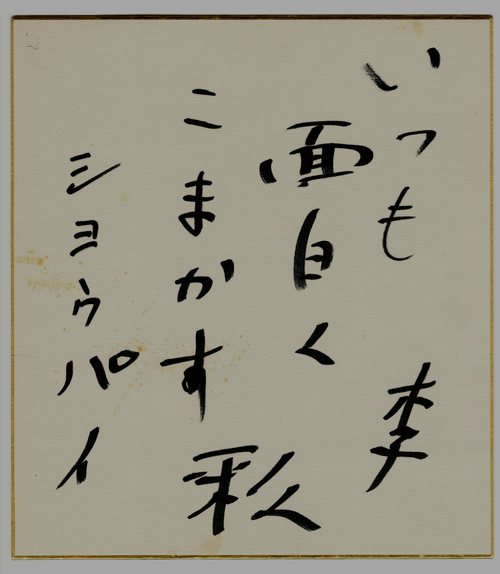 いつも 李
面白く
こまかす 彩
ショウパイ